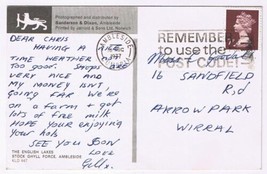 Photographed and distributed by
Sanderson & Dixon, Ambleside
Printed by Jarrold & Sons Ltd, Norwich
AMBLESIDE
REMEMBER
to use the
POST CODE
DEAR CHRIS
HAVING A
TIME WEATHER
TOO GOOD.
VERY NICE AND
MY MONEY ISN'T
GOING FAR WE'RE
ON A FARM & got
lots OF FREE milk
HOPE YOUR ENJOYING
YOUR hols
SEE YOU SOON
LOVE
16 SANDFIELD
Rd
ARROWE PARK
WIRRAL
THE ENGLISH LAKES
STOCK GHYLL FORCE, AMBLESIDE